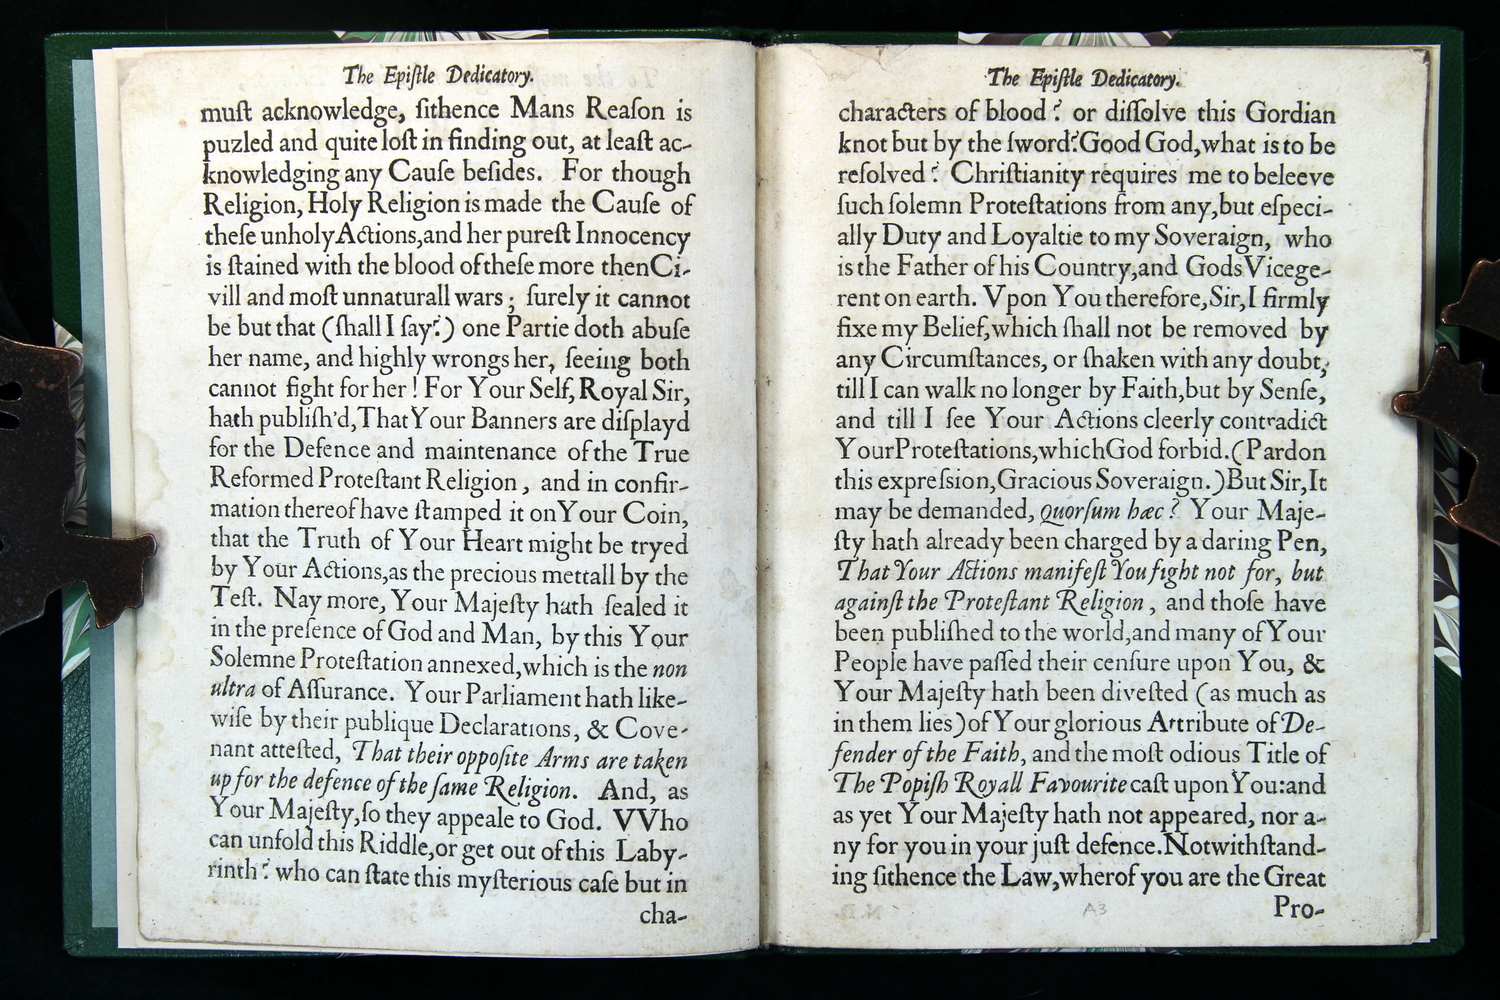 The Epiſtle Dedicatory.
muſt acknowledge, ſithence Mans Reaſon is
puzled and quite loſt in finding out, at leaſt ac-
knowledging any Cauſe beſides. For though
Religion, Holy Religion is made the Cauſe of
theſe unholy Actions, and her pureſt Innocency
is ſtained with the blood of theſe more then Ci-
vill and moſt unnaturall wars; ſurely it cannot
be but that (ſhall I ſay?) one Partie doth abuſe
her name, and highly wrongs her, ſeeing both
cannot fight for her! For Your Self, Royal Sir,
hath publiſh'd, That Your Banners are diſplayd
for the Defence and maintenance of the True
Reformed Proteſtant Religion, and in confir-
mation thereof have ſtamped it on Your Coin,
that the Truth of Your Heart might be tryed
by Your Actions, as the precious mettall by the
Teſt. Nay more, Your Majeſty hath ſealed it
in the preſence of God and Man, by this Your
Solemne Proteſtation annexed, which is the non
ultra of Aſſurance. Your Parliament hath like-
wiſe by their publique Declarations, & Cove-
nant atteſted, That their oppoſite Arms are taken
up for the defence of the ſame Religion. And, as
Your Majeſty, ſo they appeale to God. VVho
can unfold this Riddle, or get out of this Laby-
rinth? who can ſtate this myſterious caſe but in
cha-
The Epiſtle Dedicatory.
characters of blood? or diſſolve this Gordian
knot but by the ſword? Good God, what is to be
reſolved? Chriſtianity requires me to beleeve
ſuch ſolemn Proteſtations from any, but eſpeci-
ally Duty and Loyaltie to my Soveraign, who
is the Father of his Country, and Gods Vicege-
rent on earth. Vpon You therefore, Sir, I firmly
fixe my Belief, which ſhall not be removed by
any Circumſtances, or ſhaken with any doubt,
till I can walk no longer by Faith, but by Senſe,
and till I ſee Your Actions cleerly contradict
Your Proteſtations, which God forbid. (Pardon
this expreſsion, Gracious Soveraign.) But Sir, It
may be demanded, quorſum hæc? Your Maje-
ſty hath already been charged by a daring Pen,
That Your Actions manifeſt You fight not for, but
againſt the Proteſtant Religion, and thoſe have
been publiſhed to the world, and many of Your
People have paſſed their cenſure upon You, &
Your Majeſty hath been diveſted (as much as
in them lies) of Your glorious Attribute of De-
fender of the Faith, and the moſt odious Title of
The Popiſh Royall Favourite caſt upon You: and
as yet Your Majeſty hath not appeared, nor a-
ny for you in your juſt defence. Notwithſtand-
ing ſithence the Law, wherof you are the Great
A3
Pro-